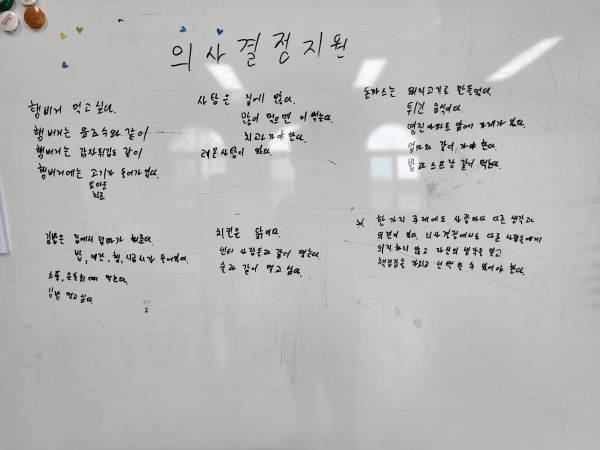 의사결정지원
햄버거 먹고 싶다.
햄버거는 음료수와 같이
햄버거는 감자튀김도 같이
햄버거에는 고기가 들어가있다.
토마토
치즈
사탕은 집에 많다.
많이 먹으면 이 썩는다.
치과 가야 한다.
레몬사탕이 있다.
돈까스는 돼지고기로 만들었다.
튀긴 음식이다.
명진아파트 앞에 가게가 있다.
엄마와 같이 가야 한다.
밥과 스프랑 같이 먹는다.
김밥은 집에서 엄마가 해준다.
밥, 계란, 햄, 시금치가 들어있다.
소풍, 운동회때 먹는다.
김밥 먹고싶다.
치킨은 닭이다.
센터 사람들과 같이 먹는다
술과 같이 먹고 싶다.
※ 한가지 주제에도 사람마다 다른 생각과
의견이 있다. 의사결정에서도 다른 사람들에게
의지하지 않고 자신의 생각을 믿고
책임감을 가지고 선택할 수 있어야 한다.